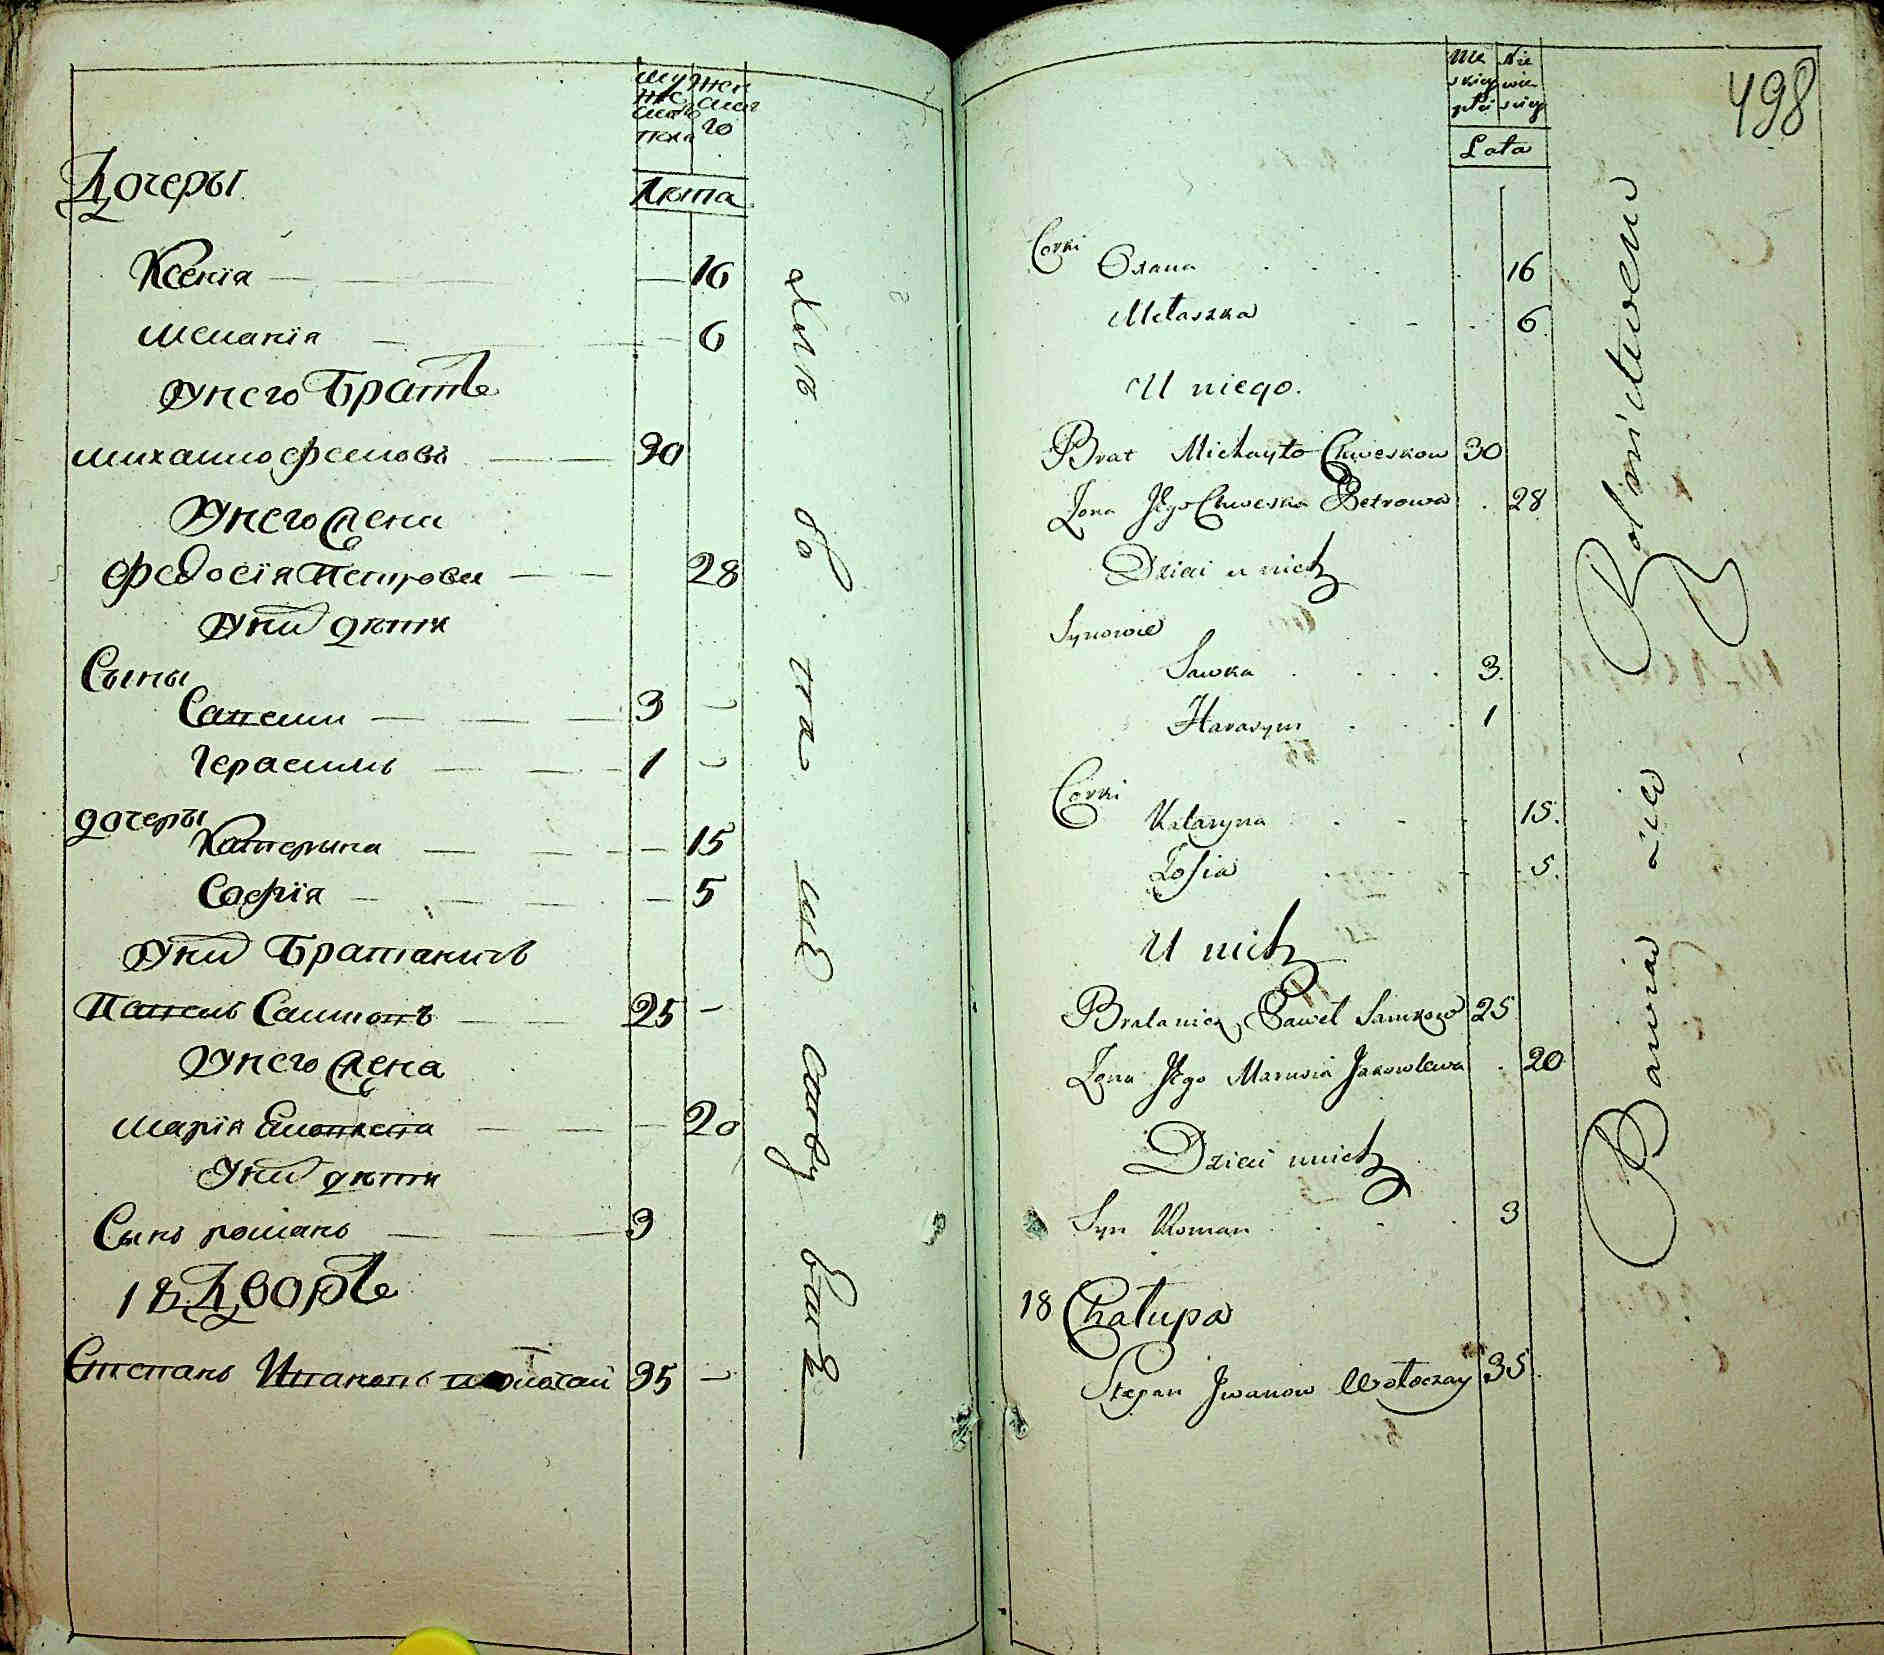 мужескаго пола
женскаго
Лѣта
Дочеры
Ксенїя 16
Меланїя 6
У него братъ
Михайло Феиовъ 30
У него жена
Федосїя Петрова 28
У них дѣти
Сыны
Савели 3
Герасимъ 1
дочеры
Катерына 15
Софїя 5
У них братаничъ
Павелъ Савиовъ 25
У него жена
Марїя 20
У них дѣти
Сынъ Романъ 3
18 Дворъ
Степанъ Ивановъ 35
498
Męskiey płci
Niewieściey
Lata
Corki
Oxana 16
Melaszka 6
U niego.
Brat Michayło Chweskow 30
Żona Jego Chweska Petrowa 28
Dzieci u nich
Synowie
Sawka 3
Harasym 1
Corki
Kataryna 15.
Zofia 5.
U nich
Bratanicz Paweł Sawkow 25
Żona Jego Marusia Jakowlewa 20
Dzieci u nich
Syn Roman 3
18 Chałupa
Stepan Iwanow Wołoczay 35
Bawią się Rolnictwem